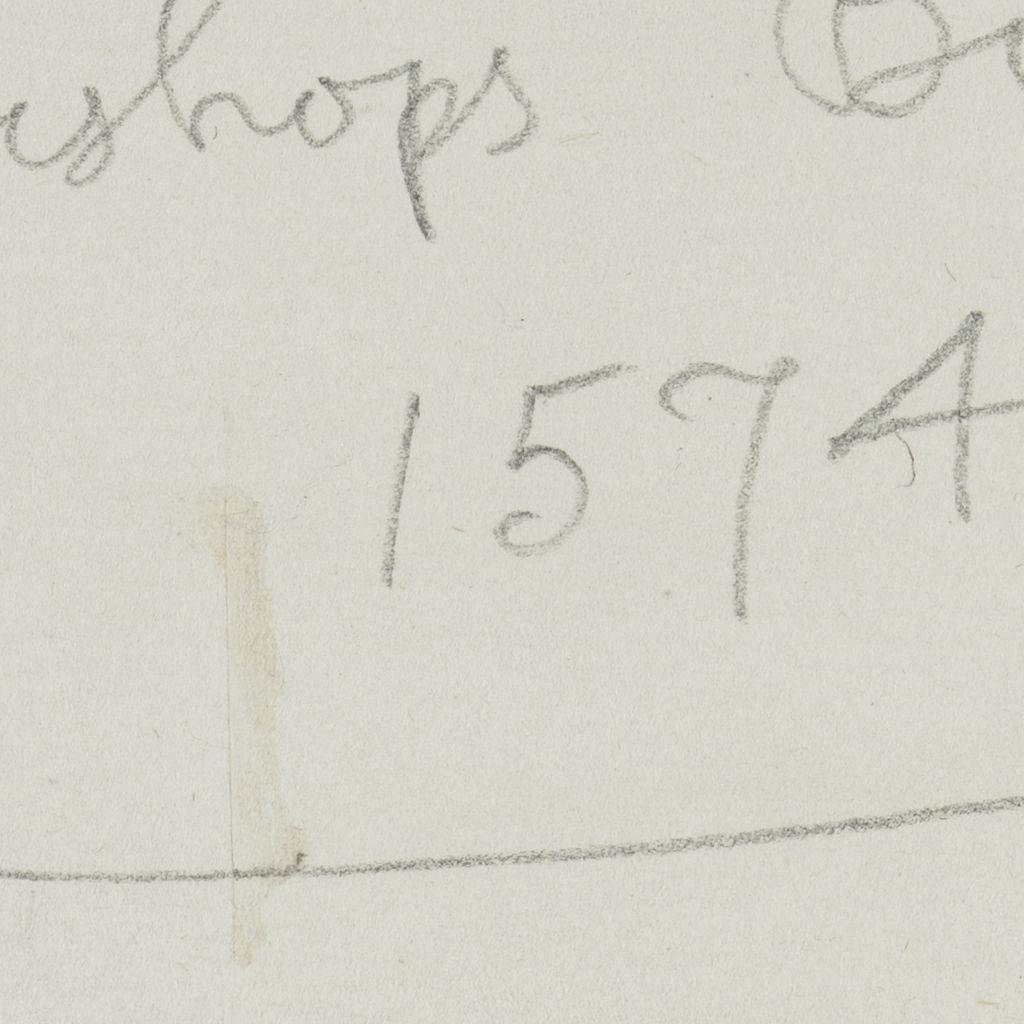 ishops B
1574